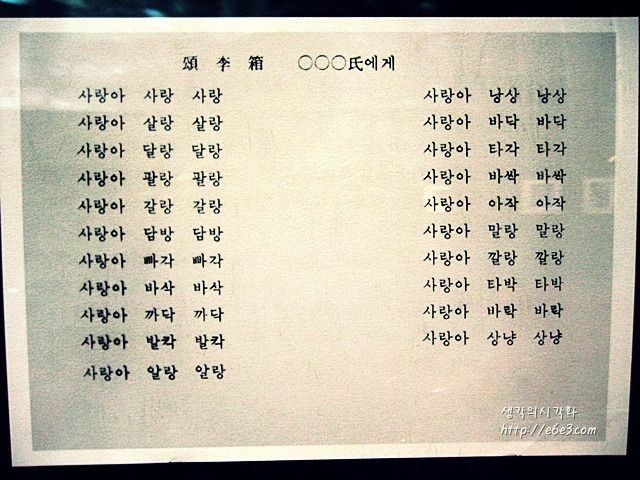 頌 李 箱 ○○○氏에게
사랑아 사랑 사랑
사랑아 살랑 살랑
사랑아 달랑 달랑
사랑아 팔랑 팔랑
사랑아 갈랑 갈랑
사랑아 담방 담방
사랑아 빠각 빠각
사랑아 바삭 바삭
사랑아 까닥 까닥
사랑아 발칵 발칵
사랑아 알랑 알랑
사랑아 낭상 낭상
사랑아 바닥 바닥
사랑아 타각 타각
사랑아 바싹 바싹
사랑아 아작 아작
사랑아 말랑 말랑
사랑아 깔랑 깔랑
사랑아 타박 타박
사랑아 바락 바락
사랑아 상냥 상냥
생각의시각화
http://e6e3.com